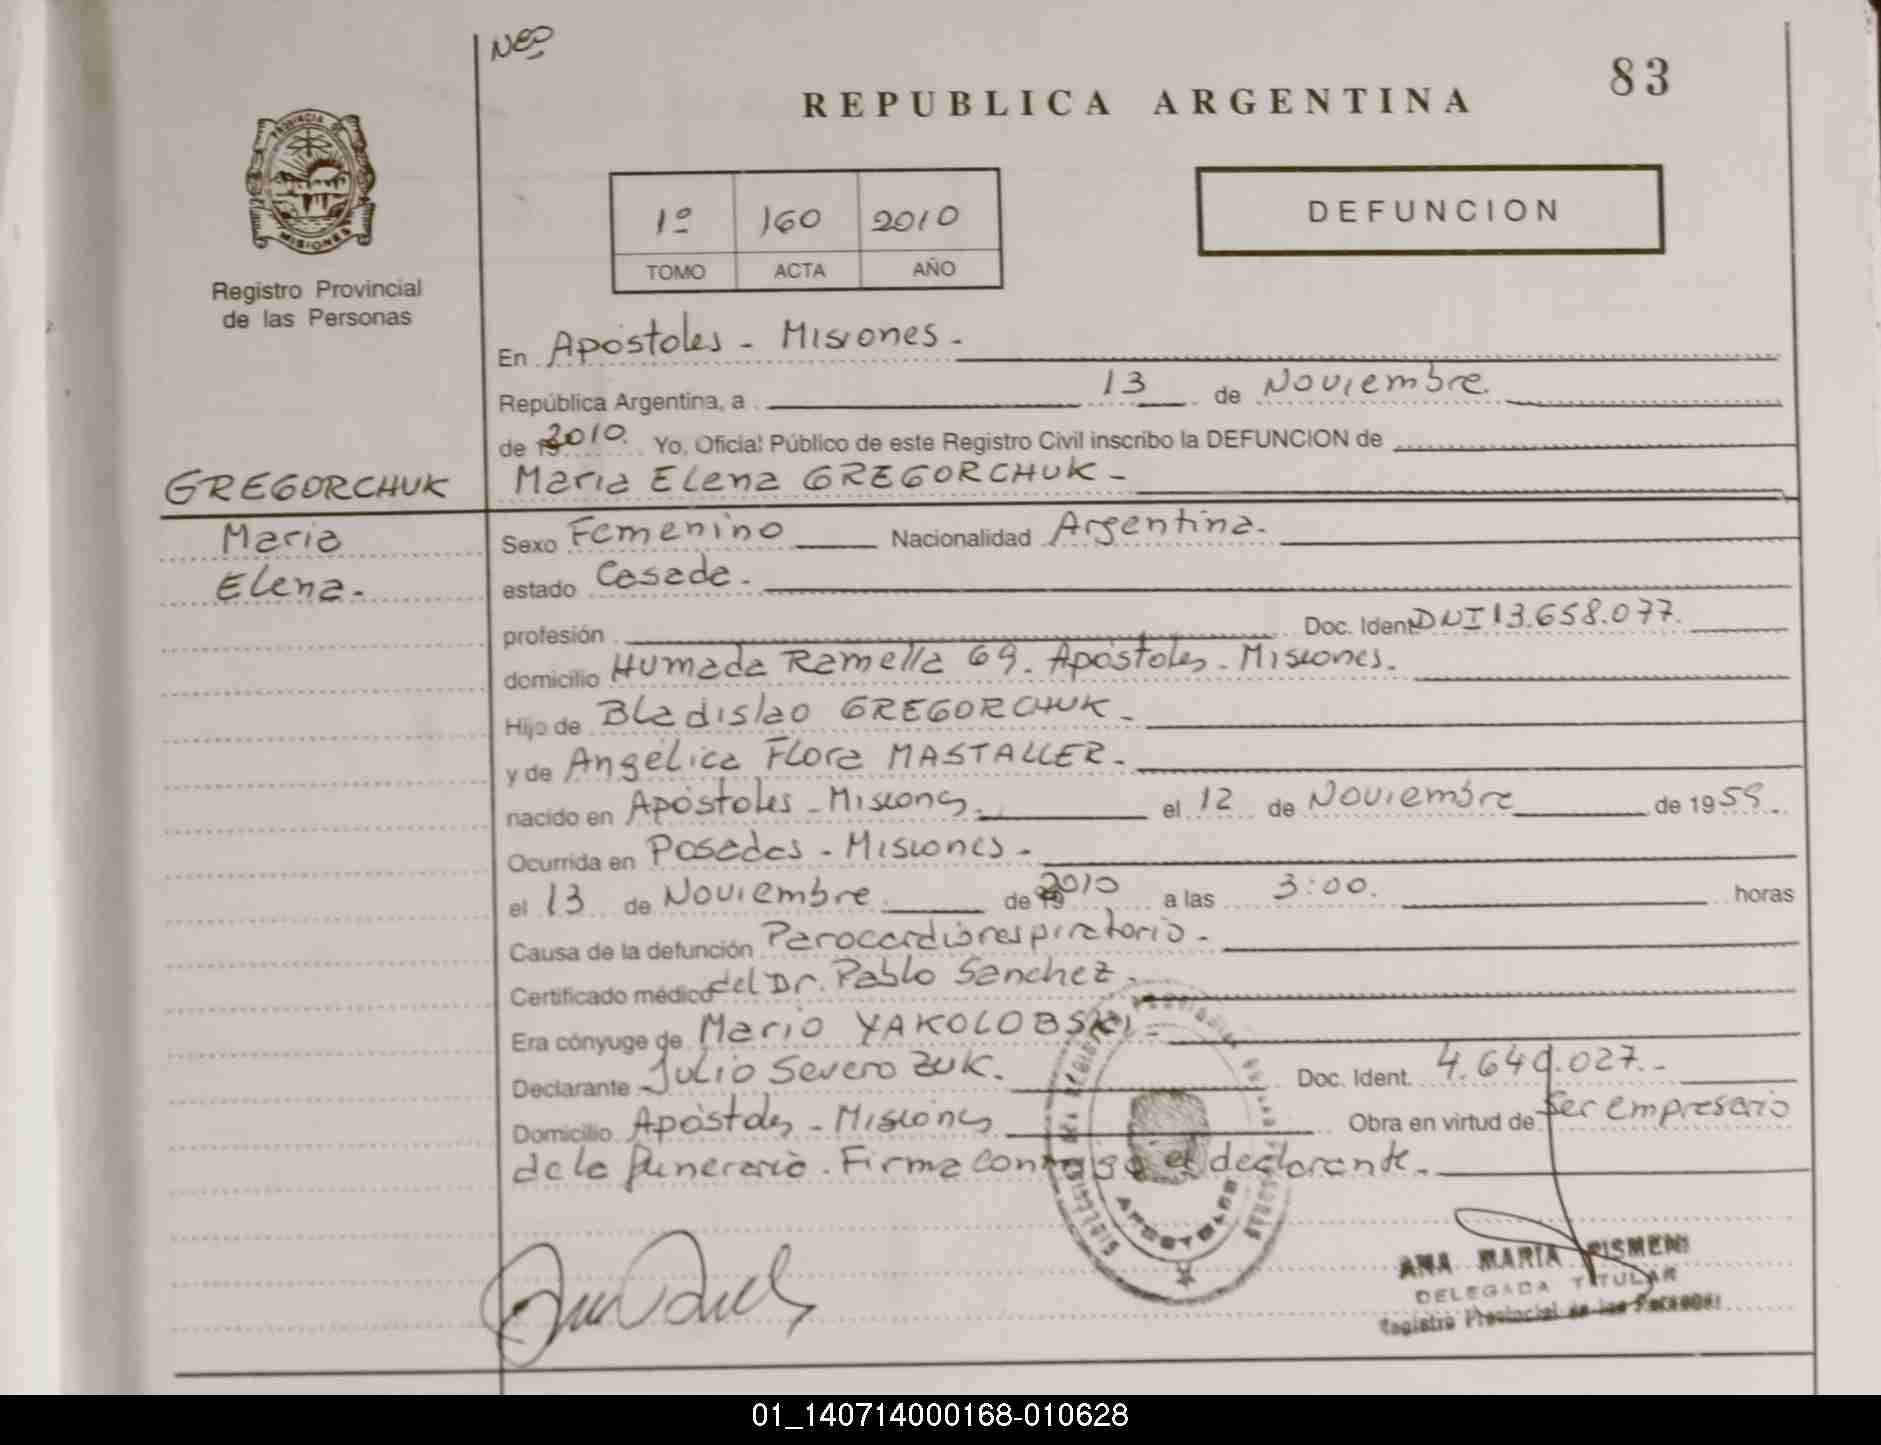 Neo
83
REPUBLICA ARGENTINA
PROVINCIA DE
MISIONES
Registro Provincial
de las Personas
1º 160 2010
TOMO ACTA AÑO
DEFUNCION
En Apóstoles - Misiones.
República Argentina, a 13 de Noviembre.
de 2010. Yo, Oficial Público de este Registro Civil inscribo la DEFUNCION de
GREGORCHUK Maria Elena GREGORCHUK -
Maria Sexo Femenino Nacionalidad Argentina.
Elena. estado Casada.
profesión Doc. Ident. DNI 13.658.077.
domicilio Humada Ramella 69. Apóstoles - Misiones.
Hijo de Bladislao GREGORCHUK -
y de Angélica Flora MASTALLER.
nacido en Apóstoles - Misiones. el 12 de Noviembre de 1959.
Ocurrida en Posadas - Misiones -
el 13 de Noviembre de 2010 a las 3:00. horas
Causa de la defunción Parocardiorespiratorio -
Certificado médico del Dr. Pablo Sanchez.
Era cónyuge de Mario YAKOLOBSKI -
Declarante Julio Severo ZUK. Doc. Ident. 4.640.027.-
Domicilio Apóstoles - Misiones Obra en virtud de ser empresario
de la funeraria. Firma conmigo el declarante.
APOSTOLES
ANA MARIA PISMENI
DELEGADA TITULAR
Registro Provincial de las Personas
01_140714000168-010628